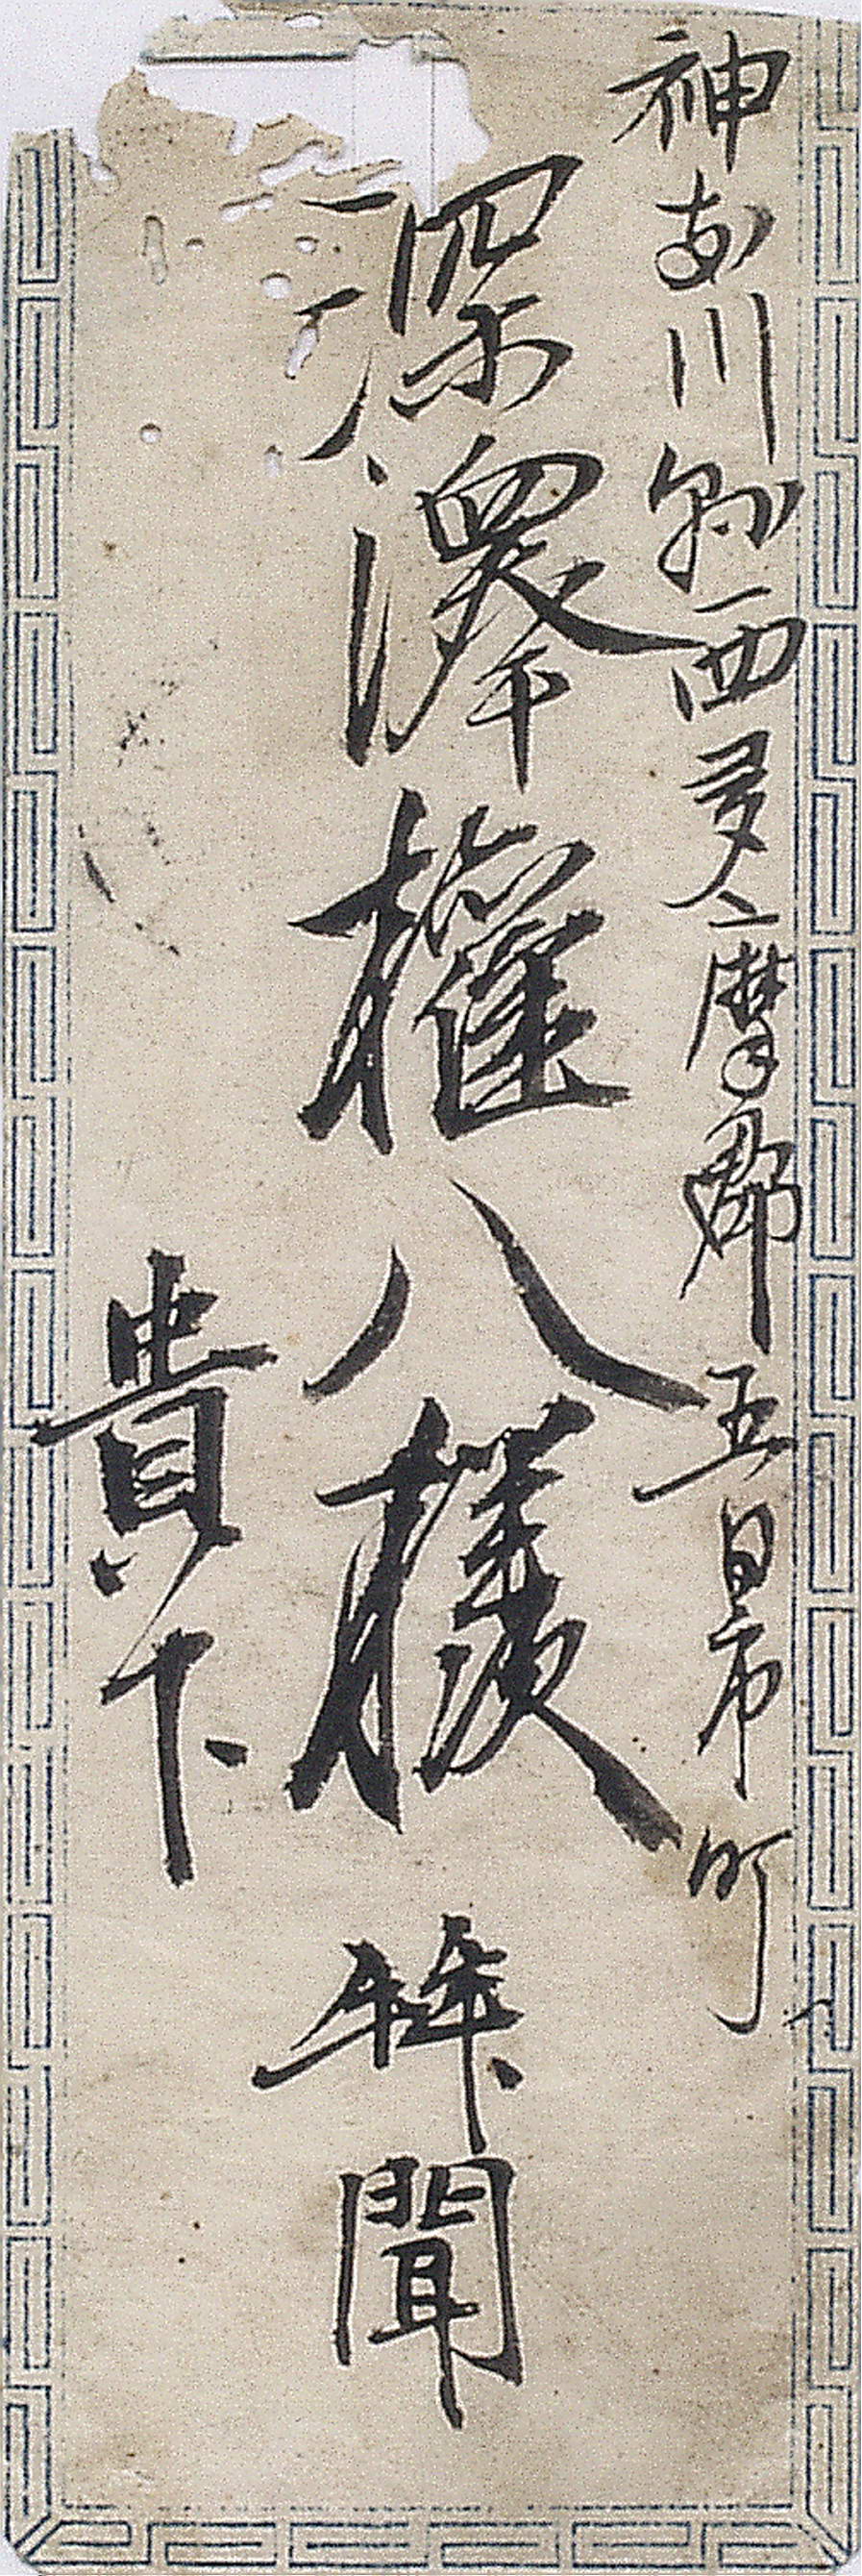 神奈川縣西多摩郡五日市町
深澤權八様
貴下